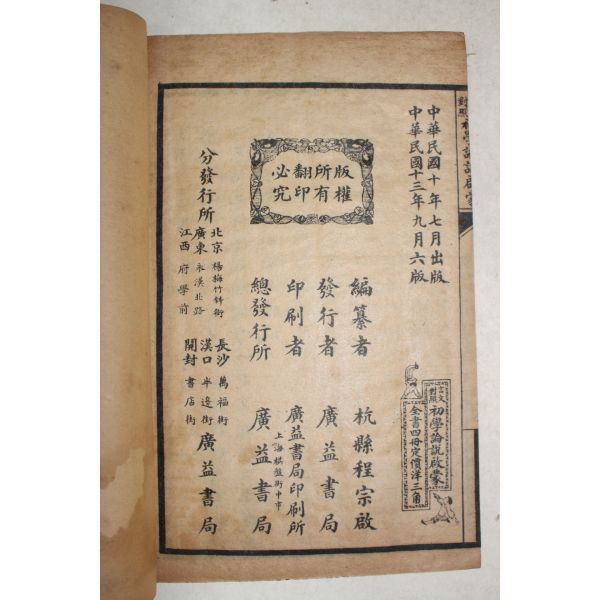 中華民國十年七月出版
中華民國十三年九月六版
言文對照
初學論說啟蒙
全書四冊定價洋三角
版權
所有
翻印
必究
編纂者 杭縣程宗啟
發行者 廣益書局
印刷者 廣益書局印刷所
上海棋盤街中市
總發行所 廣益書局
分發行所
北京 楊梅竹斜街
廣東 永漢北路
江西 府學前
長沙 萬福街
漢口 半邊街
開封 書店街
廣益書局
對照初學論說啟蒙